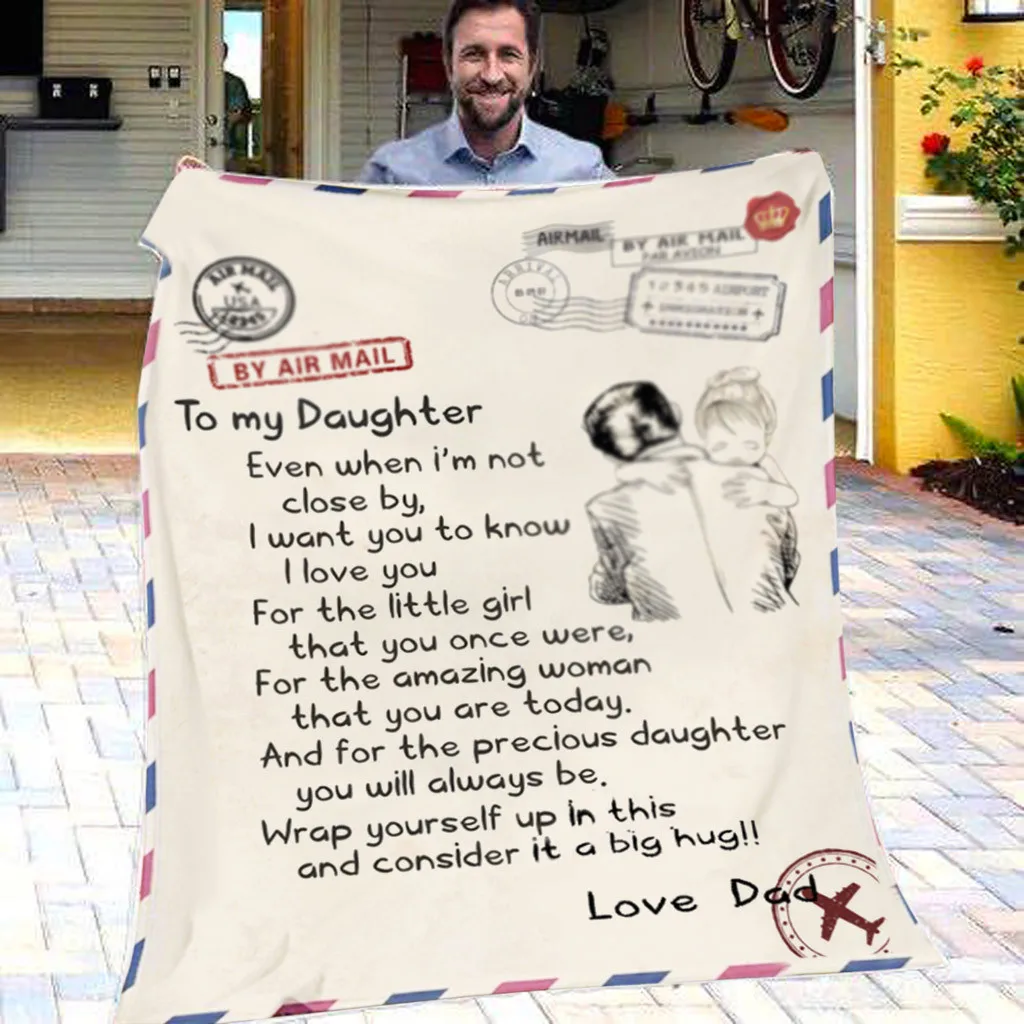 AIRMAIL
BY AIR MAIL
PAR AVION
AIR MAIL
USA
ARRIVAL
12345 AIRPORT
BY AIR MAIL
To my Daughter
Even when i'm not
close by,
I want you to know
I love you
For the little girl
that you once were,
For the amazing woman
that you are today.
And for the precious daughter
you will always be.
Wrap yourself up in this
and consider it a big hug!!
Love Dad